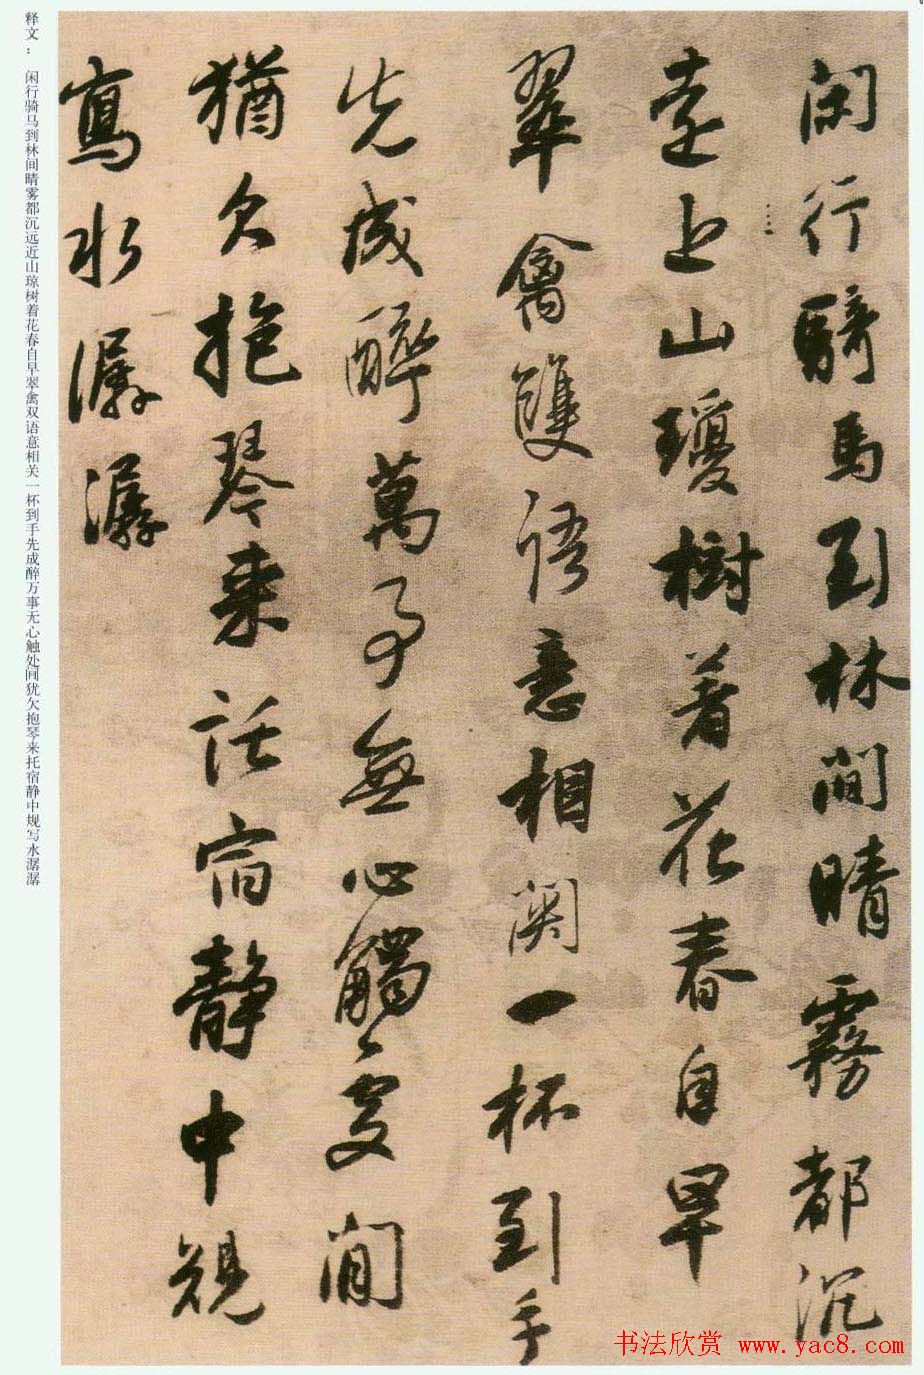 閑行騎馬到林間晴霧都沉
遠近山瓊樹著花春自早
翠禽雙語意相關一杯到手
先成醉萬事無心觸處間
猶欠抱琴来託宿静中規
寫水潺潺
释文： 闲行骑马到林间晴雾都沉远近山琼树着花春自早翠禽双语意相关一杯到手先成醉万事无心触处间犹欠抱琴来托宿静中规写水潺潺
书法欣赏 www.yac8.com